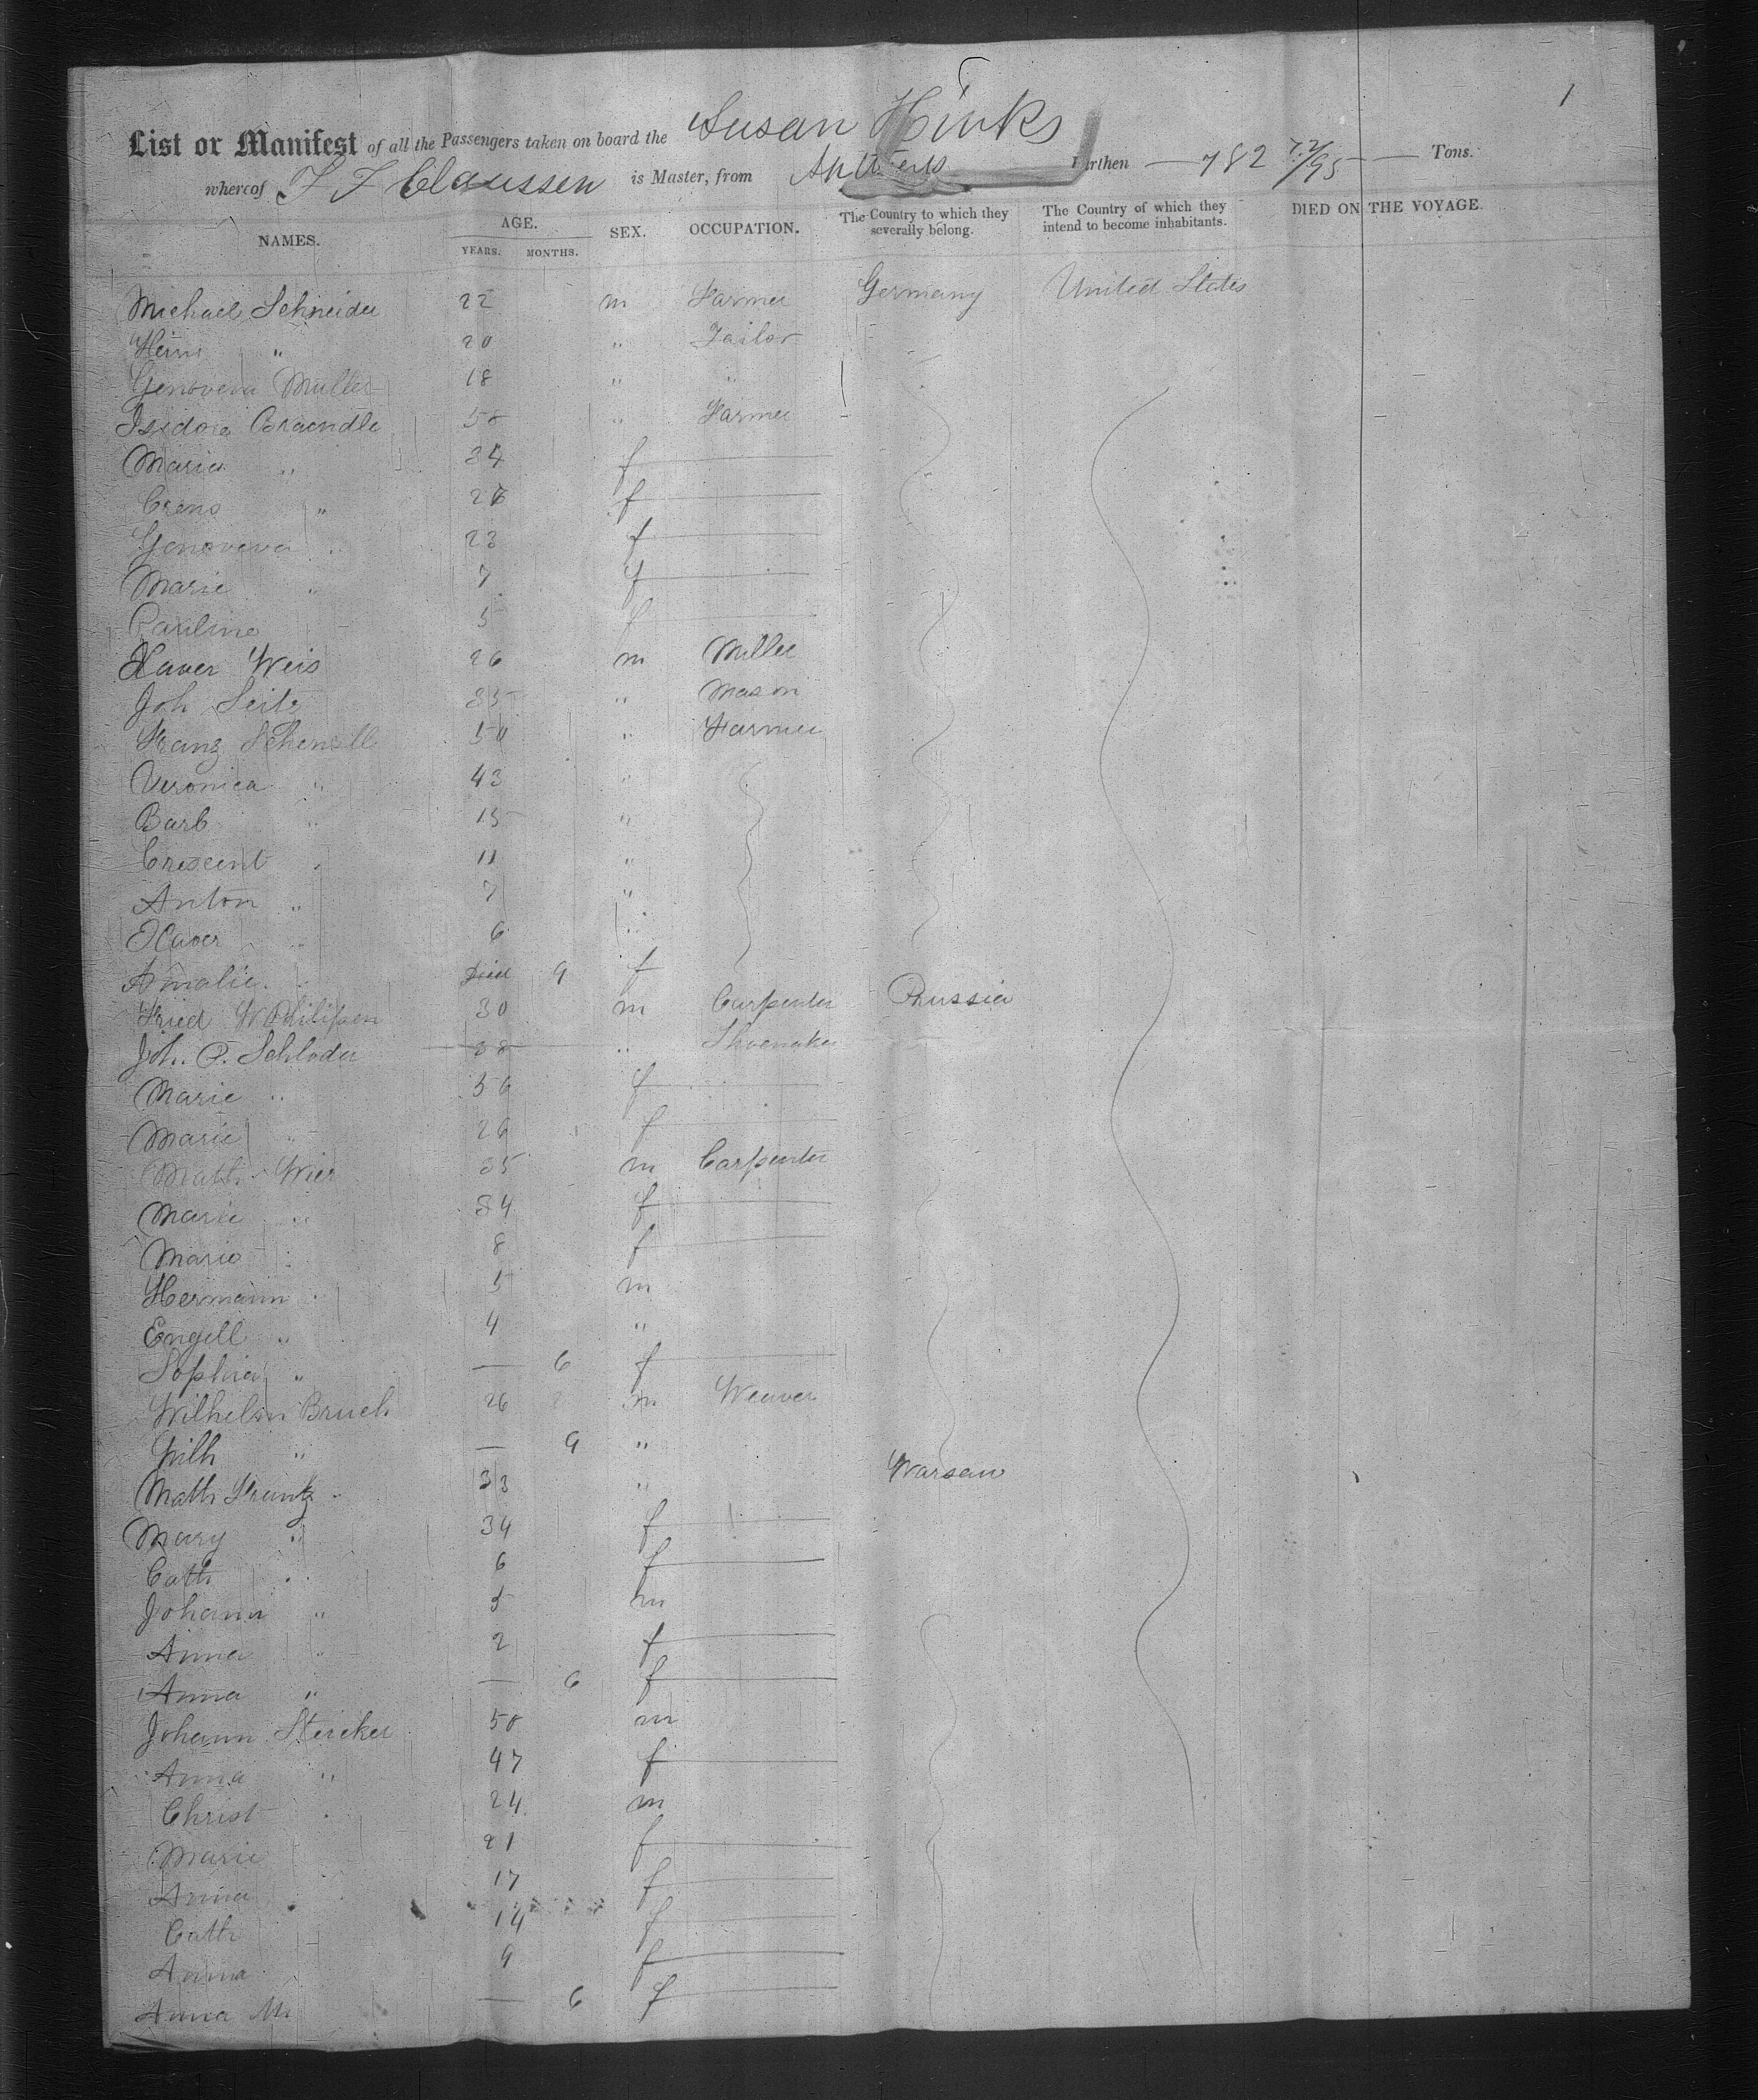 1
List or Manifest of all the Passengers taken on board the Susan Hinks
whereof J J Claussen is Master, from Antwerp Burthen 782 72/95 Tons.
NAMES. AGE. YEARS. MONTHS. SEX. OCCUPATION. The Country to which they severally belong. The Country of which they intend to become inhabitants. DIED ON THE VOYAGE.
Michael Schneider 22 m Farmer Germany United States
" 20 " Tailor
Genoveva Muller 18 " "
Isidore Braendle 50 " Farmer
Maria " 34 f
Crens " 26 f
Genoveva " 23 f
Marie " 7 f
Pauline 5 f
Xaver Weis 26 m Miller
Joh Seitz 35 " Mason
Franz 50 " Farmer
Veronica " 43 "
Barb " 15 "
Crescent " 11 "
Anton " 7 "
Xaver " 6 "
Amalie " Died 9 f
Fried 30 m Carpenter Prussia
Joh. P. Schloder 38 " Shoemaker
Marie " 56 f
Marie " 26 f
Math Wier 35 m Carpenter
Marie " 34 f
Marie " 8 f
Hermann " 5 m
Engell " 4 "
Sophia " — 6 f
Wilhelm Bruch 26 m Weaver
Wilh " — 9 "
Math Frantz 33 " Warsaw
Mary " 34 f
Cath " 6 f
Johann " 5 m
Anna " 2 f
Anna " — 6 f
Johann Stercker 50 m
Anna " 47 f
Christ " 24 m
Marie 21 f
Anna 17 f
Cath 14 f
Anna 9 f
Anna M. — 6 f